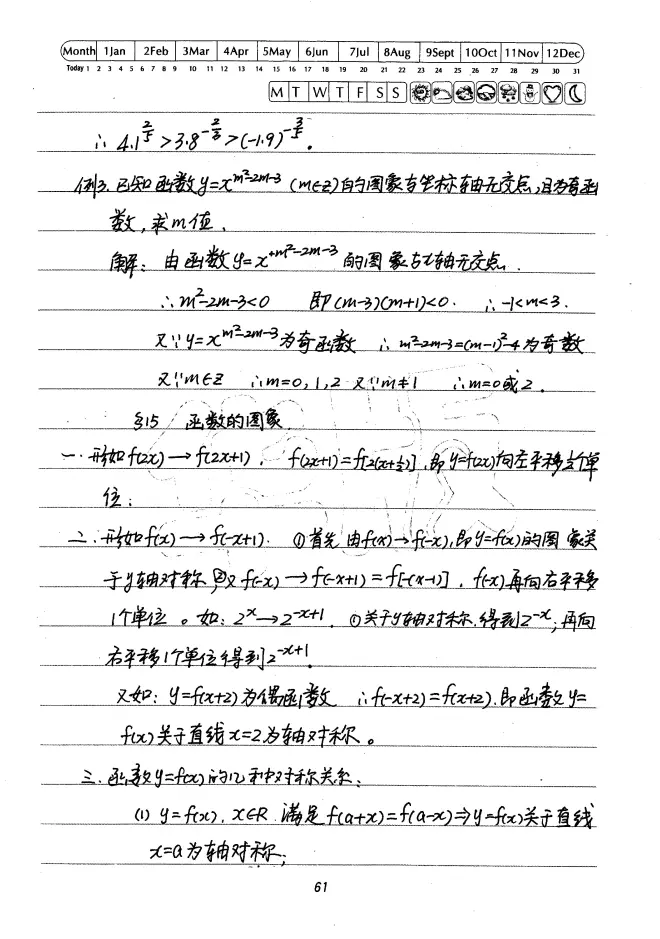 Month 1Jan 2Feb 3Mar 4Apr 5May 6Jun 7Jul 8Aug 9Sept 10Oct 11Nov 12Dec
Today 1 2 3 4 5 6 7 8 9 10 11 12 13 14 15 16 17 18 19 20 21 22 23 24 25 26 27 28 29 30 31
M T W T F S S
∴ 4.1^{2/5} > 3.8^{-2/3} > (-1.9)^{-3/5}。
例3. 已知函数y=x^{m²-2m-3} (m∈Z)的图象与坐标轴无交点,且为奇函
数,求m值.
解: 由函数y=x^{m²-2m-3} 的图象与x轴无交点.
∴m²-2m-3<0 即(m-3)(m+1)<0. ∴-1<m<3.
又∵y=x^{m²-2m-3}为奇函数 ∴m²-2m-3=(m-1)²-4为奇数
又∵m∈Z ∴m=0,1,2 又∵m≠1 ∴m=0或2.
§15 函数的图象
一. 形如f(2x)→f(2x+1). f(2x+1)=f[2(x+½)],即y=f(2x)向左平移½个单
位;
二. 形如f(x)→f(-x+1). ①首先由f(x)→f(-x),即y=f(x)的图象关
于y轴对称 ②又f(-x)→f(-x+1)=f[-(x-1)], f(-x)再向右平移
1个单位。如: 2^x→2^{-x+1}. ①关于y轴对称,得到2^{-x};再向
右平移1个单位得到2^{-x+1}.
又如: y=f(x+2)为偶函数 ∴f(-x+2)=f(x+2).即函数y=
f(x)关于直线x=2为轴对称。
三. 函数y=f(x)的几种对称关系:
(1) y=f(x), x∈R 满足f(a+x)=f(a-x)⇒y=f(x)关于直线
x=a为轴对称;
61